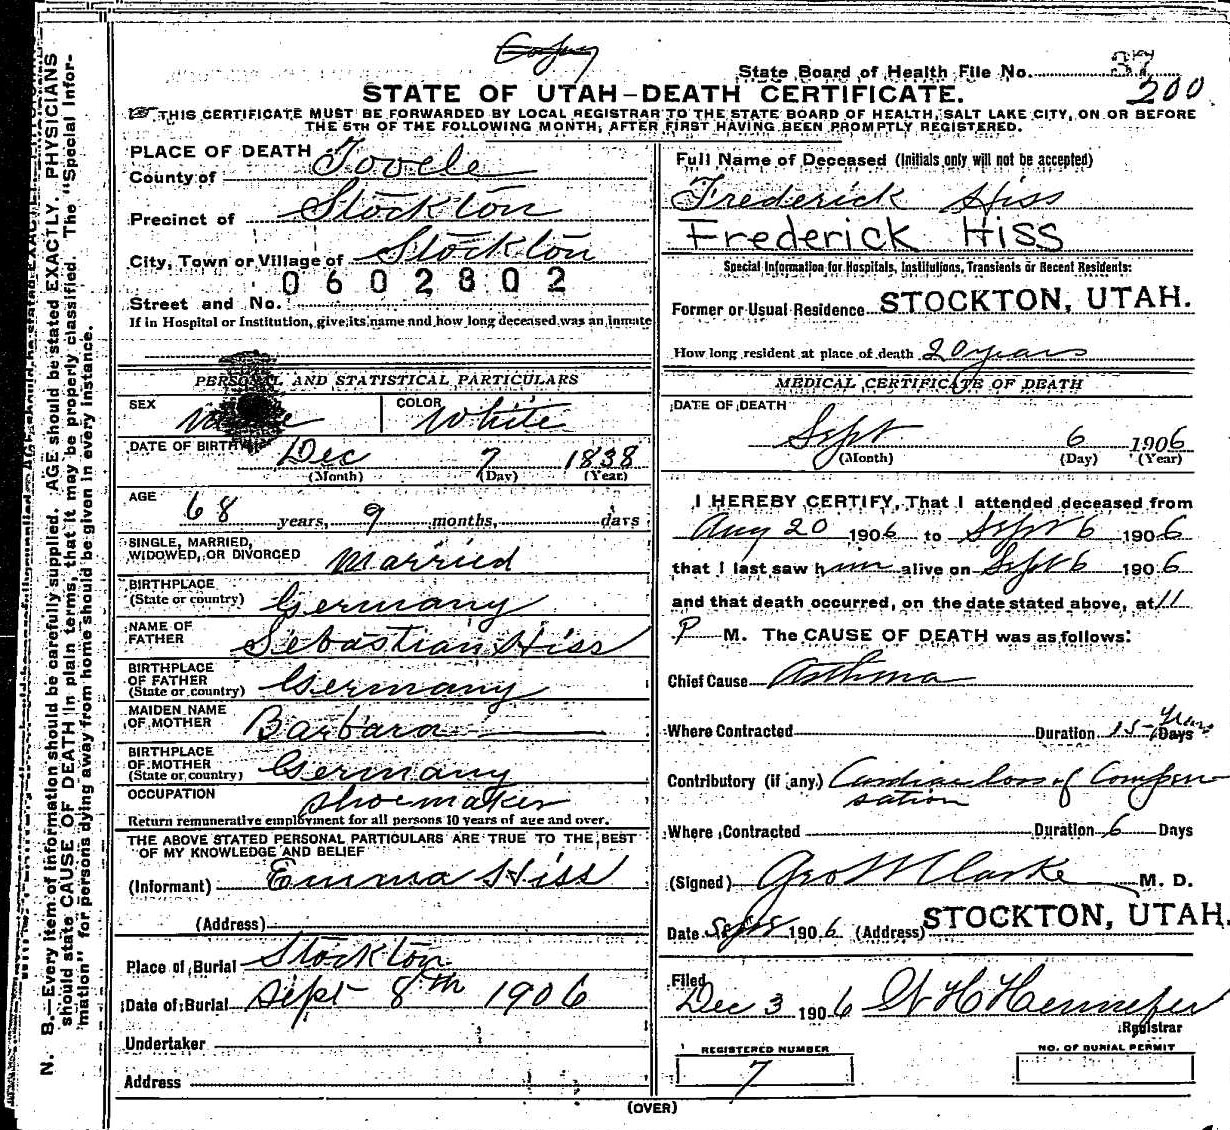 Copy
State Board of Health File No. 37
200
STATE OF UTAH–DEATH CERTIFICATE.
THIS CERTIFICATE MUST BE FORWARDED BY LOCAL REGISTRAR TO THE STATE BOARD OF HEALTH, SALT LAKE CITY, ON OR BEFORE
THE 5TH OF THE FOLLOWING MONTH, AFTER FIRST HAVING BEEN PROMPTLY REGISTERED.
PLACE OF DEATH
County of Tooele
Precinct of Stockton
City, Town or Village of Stockton
0602802
Street and No.
If in Hospital or Institution, give its name and how long deceased was an inmate
PERSONAL AND STATISTICAL PARTICULARS
SEX Male COLOR White
DATE OF BIRTH Dec 7 1838
(Month) (Day) (Year)
AGE 68 years, 9 months, days
SINGLE, MARRIED,
WIDOWED, OR DIVORCED Married
BIRTHPLACE
(State or country) Germany
NAME OF
FATHER Sebastian Hiss
BIRTHPLACE
OF FATHER
(State or country) Germany
MAIDEN NAME
OF MOTHER Barbara
BIRTHPLACE
OF MOTHER
(State or country) Germany
OCCUPATION Shoemaker
Return remunerative employment for all persons 10 years of age and over.
THE ABOVE STATED PERSONAL PARTICULARS ARE TRUE TO THE BEST
OF MY KNOWLEDGE AND BELIEF
(Informant) Emma Hiss
(Address)
Place of Burial Stockton
Date of Burial Sept 8th 1906
Undertaker
Address
Full Name of Deceased (Initials only will not be accepted)
Frederick Hiss
Frederick Hiss
Special Information for Hospitals, Institutions, Transients or Recent Residents:
Former or Usual Residence STOCKTON, UTAH.
How long resident at place of death 20 years
MEDICAL CERTIFICATE OF DEATH
DATE OF DEATH
Sept 6 1906
(Month) (Day) (Year)
I HEREBY CERTIFY, That I attended deceased from
Aug 20 1906 to Sept 6 1906
that I last saw him alive on Sept 6 1906
and that death occurred, on the date stated above, at 11
P M. The CAUSE OF DEATH was as follows:
Chief Cause Asthma
Where Contracted Duration 15 Years Days
Contributory (if any.) Cardiac loss of Compen
sation
Where Contracted Duration 6 Days
(Signed) Geo W Clarke M. D.
Date Sept 1906 (Address) STOCKTON, UTAH.
Filed
Dec 3 1906 W H Hennefer
Registrar
REGISTERED NUMBER
7
NO. OF BURIAL PERMIT
(OVER)
N. B.—Every item of information should be carefully supplied. AGE should be stated EXACTLY. PHYSICIANS
should state CAUSE OF DEATH in plain terms, that it may be properly classified. The "Special Infor-
mation" for persons dying away from home should be given in every instance.